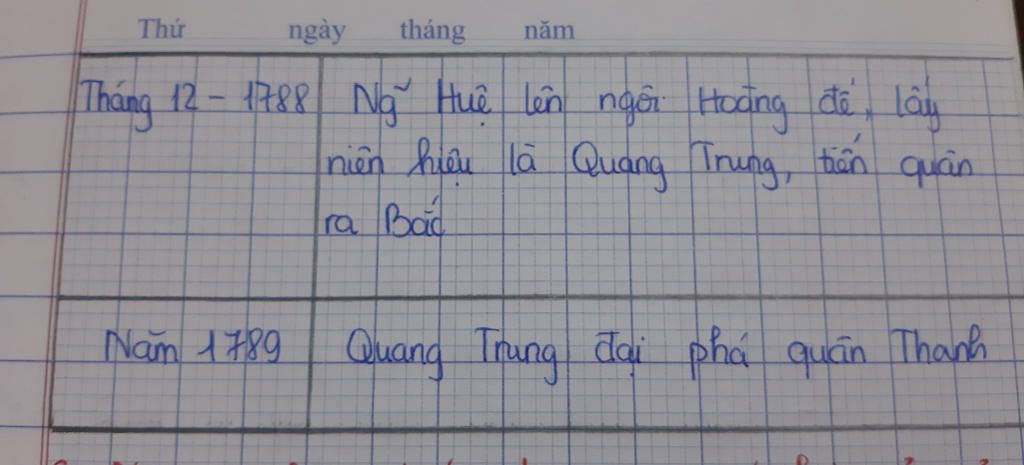 Thứ ngày tháng năm
Tháng 12 - 1788 Ng~ Huệ lên ngôi Hoàng đế, lấy
niên hiệu là Quang Trung, tiến quân
ra Bắc
Năm 1789 Quang Trung đại phá quân Thanh